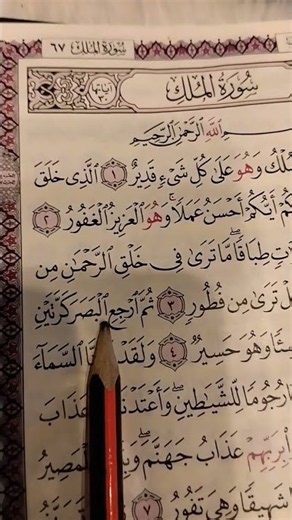 سُورَةُ المُلْكِ ٦٧
سُورَةُ المُلْكِ
آيَاتُهَا ٣٠
اللَّهِ الرَّحْمَٰنِ الرَّحِيمِ
وَهُوَ عَلَىٰ كُلِّ شَيْءٍ قَدِيرٌ ١ الَّذِي خَلَقَ
أَيُّكُمْ أَحْسَنُ عَمَلًا ۚ وَهُوَ الْعَزِيزُ الْغَفُورُ ٢
طِبَاقًا ۖ مَّا تَرَىٰ فِي خَلْقِ الرَّحْمَٰنِ مِن
تَرَىٰ مِن فُطُورٍ ٣ ثُمَّ ارْجِعِ الْبَصَرَ كَرَّتَيْنِ
وَهُوَ حَسِيرٌ ٤ وَلَقَدْ السَّمَاءَ
رُجُومًا لِّلشَّيَاطِينِ ۖ وَأَعْتَدْنَا عَذَابَ
بِرَبِّهِمْ عَذَابُ جَهَنَّمَ ۖ الْمَصِيرُ
شَهِيقًا وَهِيَ تَفُورُ ٧